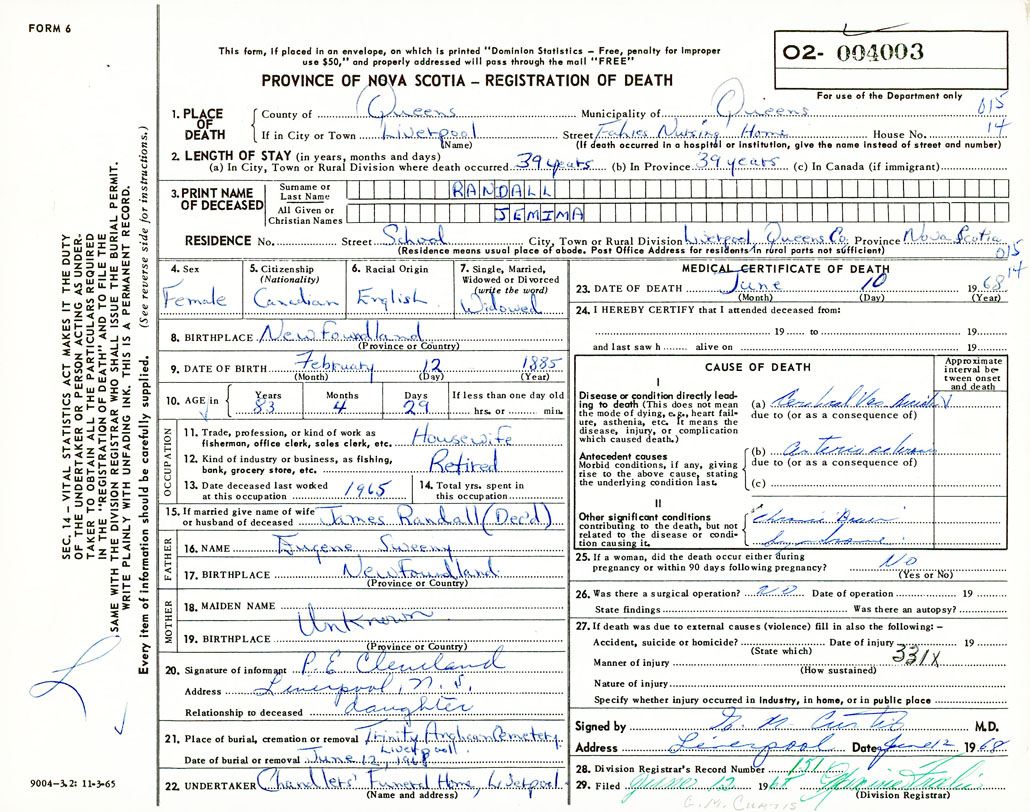 FORM 6
This form, if placed in an envelope, on which is printed "Dominion Statistics – Free, penalty for improper
use $50," and properly addressed will pass through the mail "FREE"
O2- 004003
PROVINCE OF NOVA SCOTIA – REGISTRATION OF DEATH
For use of the Department only
1. PLACE OF DEATH
County of Queens Municipality of Queens 015
If in City or Town Liverpool Street Fahies Nursing Home House No. 14
(Name) (If death occurred in a hospital or institution, give the name instead of street and number)
2. LENGTH OF STAY (in years, months and days)
(a) In City, Town or Rural Division where death occurred 39 years (b) In Province 39 years (c) In Canada (if immigrant)
3. PRINT NAME OF DECEASED
Surname or Last Name RANDALL
All Given or Christian Names JEMIMA
RESIDENCE No. Street School City, Town or Rural Division Liverpool, Queens Co. Province Nova Scotia
(Residence means usual place of abode. Post Office Address for residents in rural parts not sufficient) 015
14
4. Sex
Female
5. Citizenship (Nationality)
Canadian
6. Racial Origin
English
7. Single, Married, Widowed or Divorced (write the word)
Widowed
8. BIRTHPLACE Newfoundland
(Province or Country)
9. DATE OF BIRTH February 12 1885
(Month) (Day) (Year)
10. AGE in Years 83 Months 4 Days 29 If less than one day old hrs. or min.
OCCUPATION
11. Trade, profession, or kind of work as fisherman, office clerk, sales clerk, etc. Housewife
12. Kind of industry or business, as fishing, bank, grocery store, etc. Retired
13. Date deceased last worked at this occupation 1965
14. Total yrs. spent in this occupation
15. If married give name of wife or husband of deceased James Randall (Dec'd)
FATHER
16. NAME Eugene Sweeny
17. BIRTHPLACE Newfoundland
(Province or Country)
MOTHER
18. MAIDEN NAME
Unknown
19. BIRTHPLACE
(Province or Country)
20. Signature of informant P. E. Cleveland
Address Liverpool, N. S.
Relationship to deceased daughter
21. Place of burial, cremation or removal Trinity Anglican Cemetery
Liverpool
Date of burial or removal June 12, 1968
22. UNDERTAKER Chandlers' Funeral Home, Liverpool
(Name and address)
MEDICAL CERTIFICATE OF DEATH
23. DATE OF DEATH June 10 1968
(Month) (Day) (Year)
24. I HEREBY CERTIFY that I attended deceased from:
19 to 19
and last saw h alive on 19
CAUSE OF DEATH
Approximate interval between onset and death
I
Disease or condition directly leading to death (This does not mean the mode of dying, e.g., heart failure, asthenia, etc. It means the disease, injury, or complication which caused death.)
(a) Cerebral
due to (or as a consequence of)
Antecedent causes
Morbid conditions, if any, giving rise to the above cause, stating the underlying condition last.
(b)
due to (or as a consequence of)
(c)
II
Other significant conditions
contributing to the death, but not related to the disease or condition causing it.
Chronic Brain
25. If a woman, did the death occur either during pregnancy or within 90 days following pregnancy? NO
(Yes or No)
26. Was there a surgical operation? NO Date of operation 19
State findings Was there an autopsy?
27. If death was due to external causes (violence) fill in also the following: –
Accident, suicide or homicide? Date of injury 19
(State which)
Manner of injury 331X
(How sustained)
Nature of injury
Specify whether injury occurred in industry, in home, or in public place
Signed by G. M. Curtis M.D.
Address Liverpool Date June 12 1968
28. Division Registrar's Record Number 151
29. Filed June 12 1968
(Division Registrar)
G. M. CURTIS
SEC. 14 – VITAL STATISTICS ACT MAKES IT THE DUTY
OF THE UNDERTAKER OR PERSON ACTING AS UNDER-
TAKER TO OBTAIN ALL THE PARTICULARS REQUIRED
IN THE "REGISTRATION OF DEATH" AND TO FILE THE
SAME WITH THE DIVISION REGISTRAR WHO SHALL ISSUE THE BURIAL PERMIT.
WRITE PLAINLY WITH UNFADING INK. THIS IS A PERMANENT RECORD.
Every item of information should be carefully supplied. (See reverse side for instructions.)
9004–3.2: 11-3-65